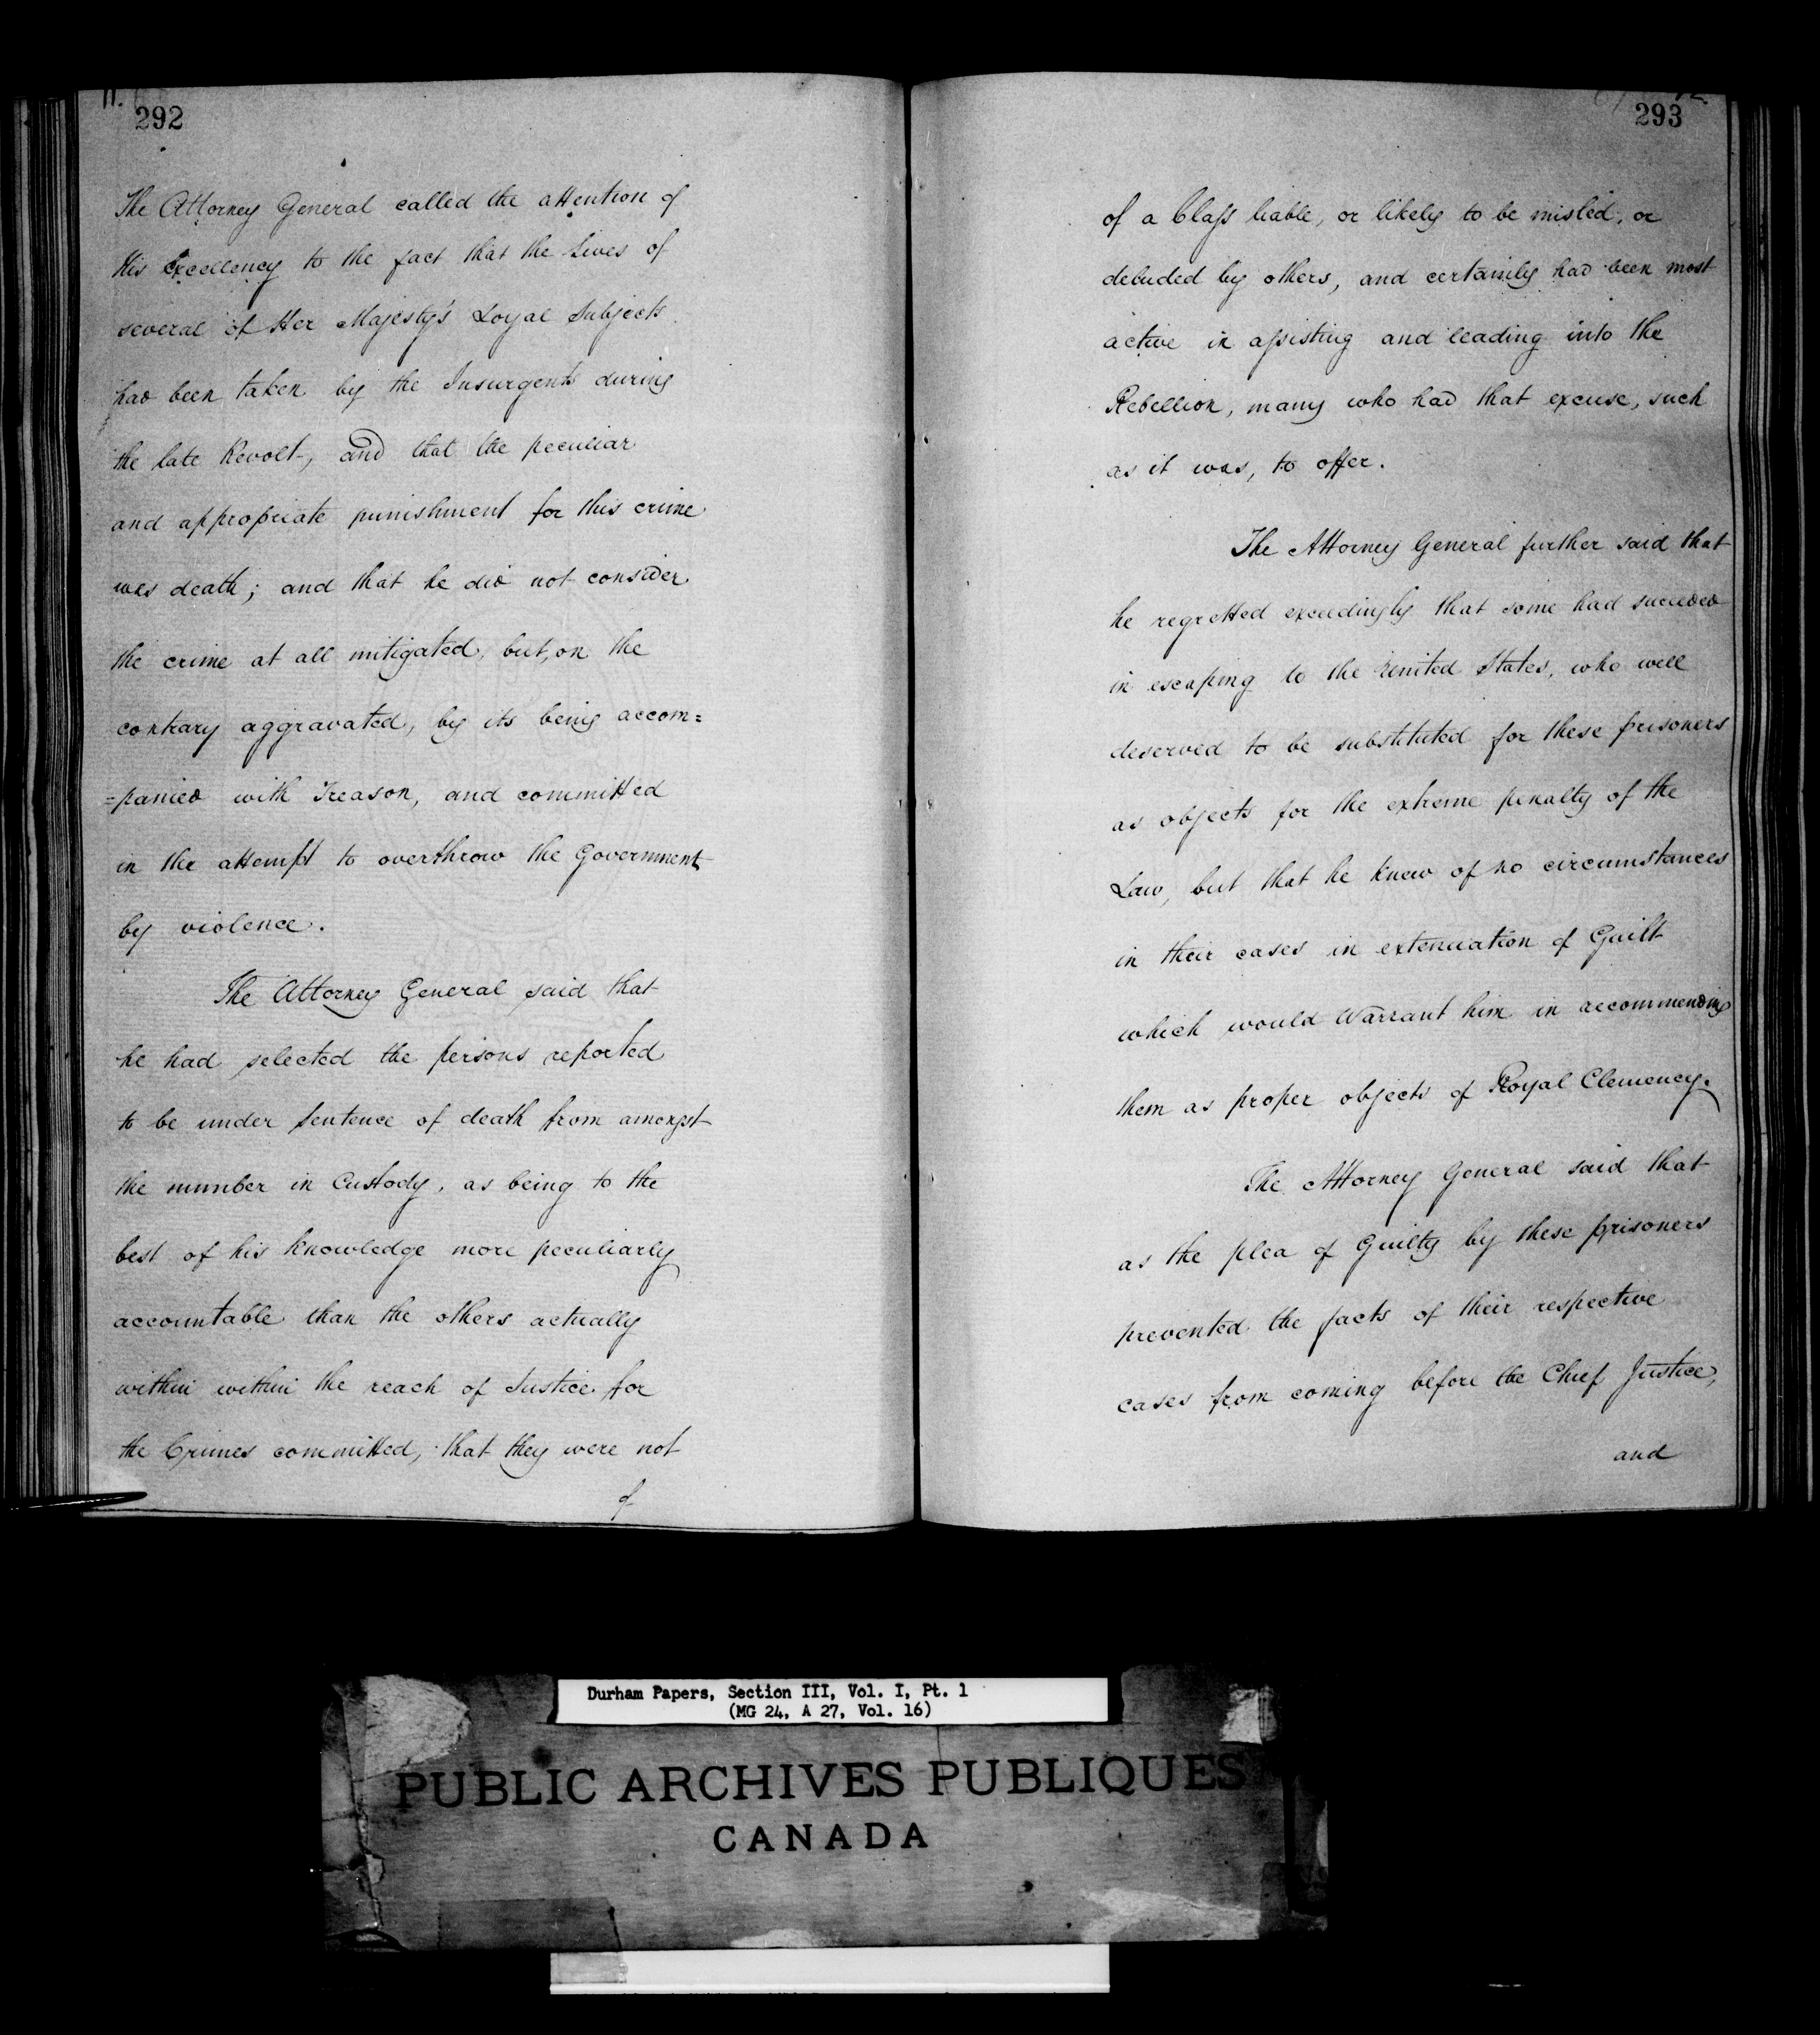 11.
292
The Attorney General called the attention of
His Excellency to the fact that the Lives of
several of Her Majesty's Loyal Subjects
had been taken by the Insurgents during
the late Revolt, and that the peculiar
and appropriate punishment for this crime
was death; and that he did not consider
the crime at all mitigated, but, on the
contrary aggravated, by its being accom=
=panied with Treason, and committed
in the attempt to overthrow the Government
by violence.
The Attorney General said that
he had selected the persons reported
to be under Sentence of death from amongst
the number in Custody, as being to the
best of his knowledge more peculiarly
accountable than the others actually
within within the reach of Justice for
the Crimes committed, that they were not
of
293
of a Class liable, or likely to be misled, or
deluded by others, and certainly had been most
active in assisting and leading into the
Rebellion, many who had that excuse, such
as it was, to offer.
The Attorney General further said that
he regretted exceedingly that some had succeeded
in escaping to the United States, who well
deserved to be substituted for these prisoners
as objects for the extreme penalty of the
Law, but that he knew of no circumstances
in their cases in extenuation of Guilt
which would Warrant him in recommending
them as proper objects of Royal Clemency.
The Attorney General said that
as the plea of Guilty by these prisoners
prevented the facts of their respective
cases from coming before the Chief Justice,
and
Durham Papers, Section III, Vol. I, Pt. 1
(MG 24, A 27, Vol. 16)
PUBLIC ARCHIVES PUBLIQUES
CANADA